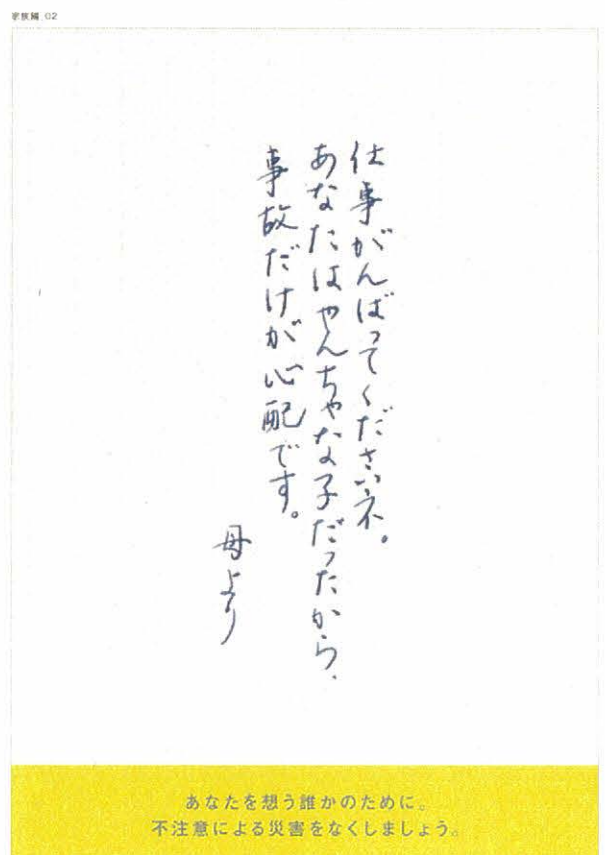 家族編_02
仕事がんばってくださいネ。
あなたはやんちゃな子だったから、
事故だけが心配です。
母より
あなたを想う誰かのために。
不注意による災害をなくしましょう。